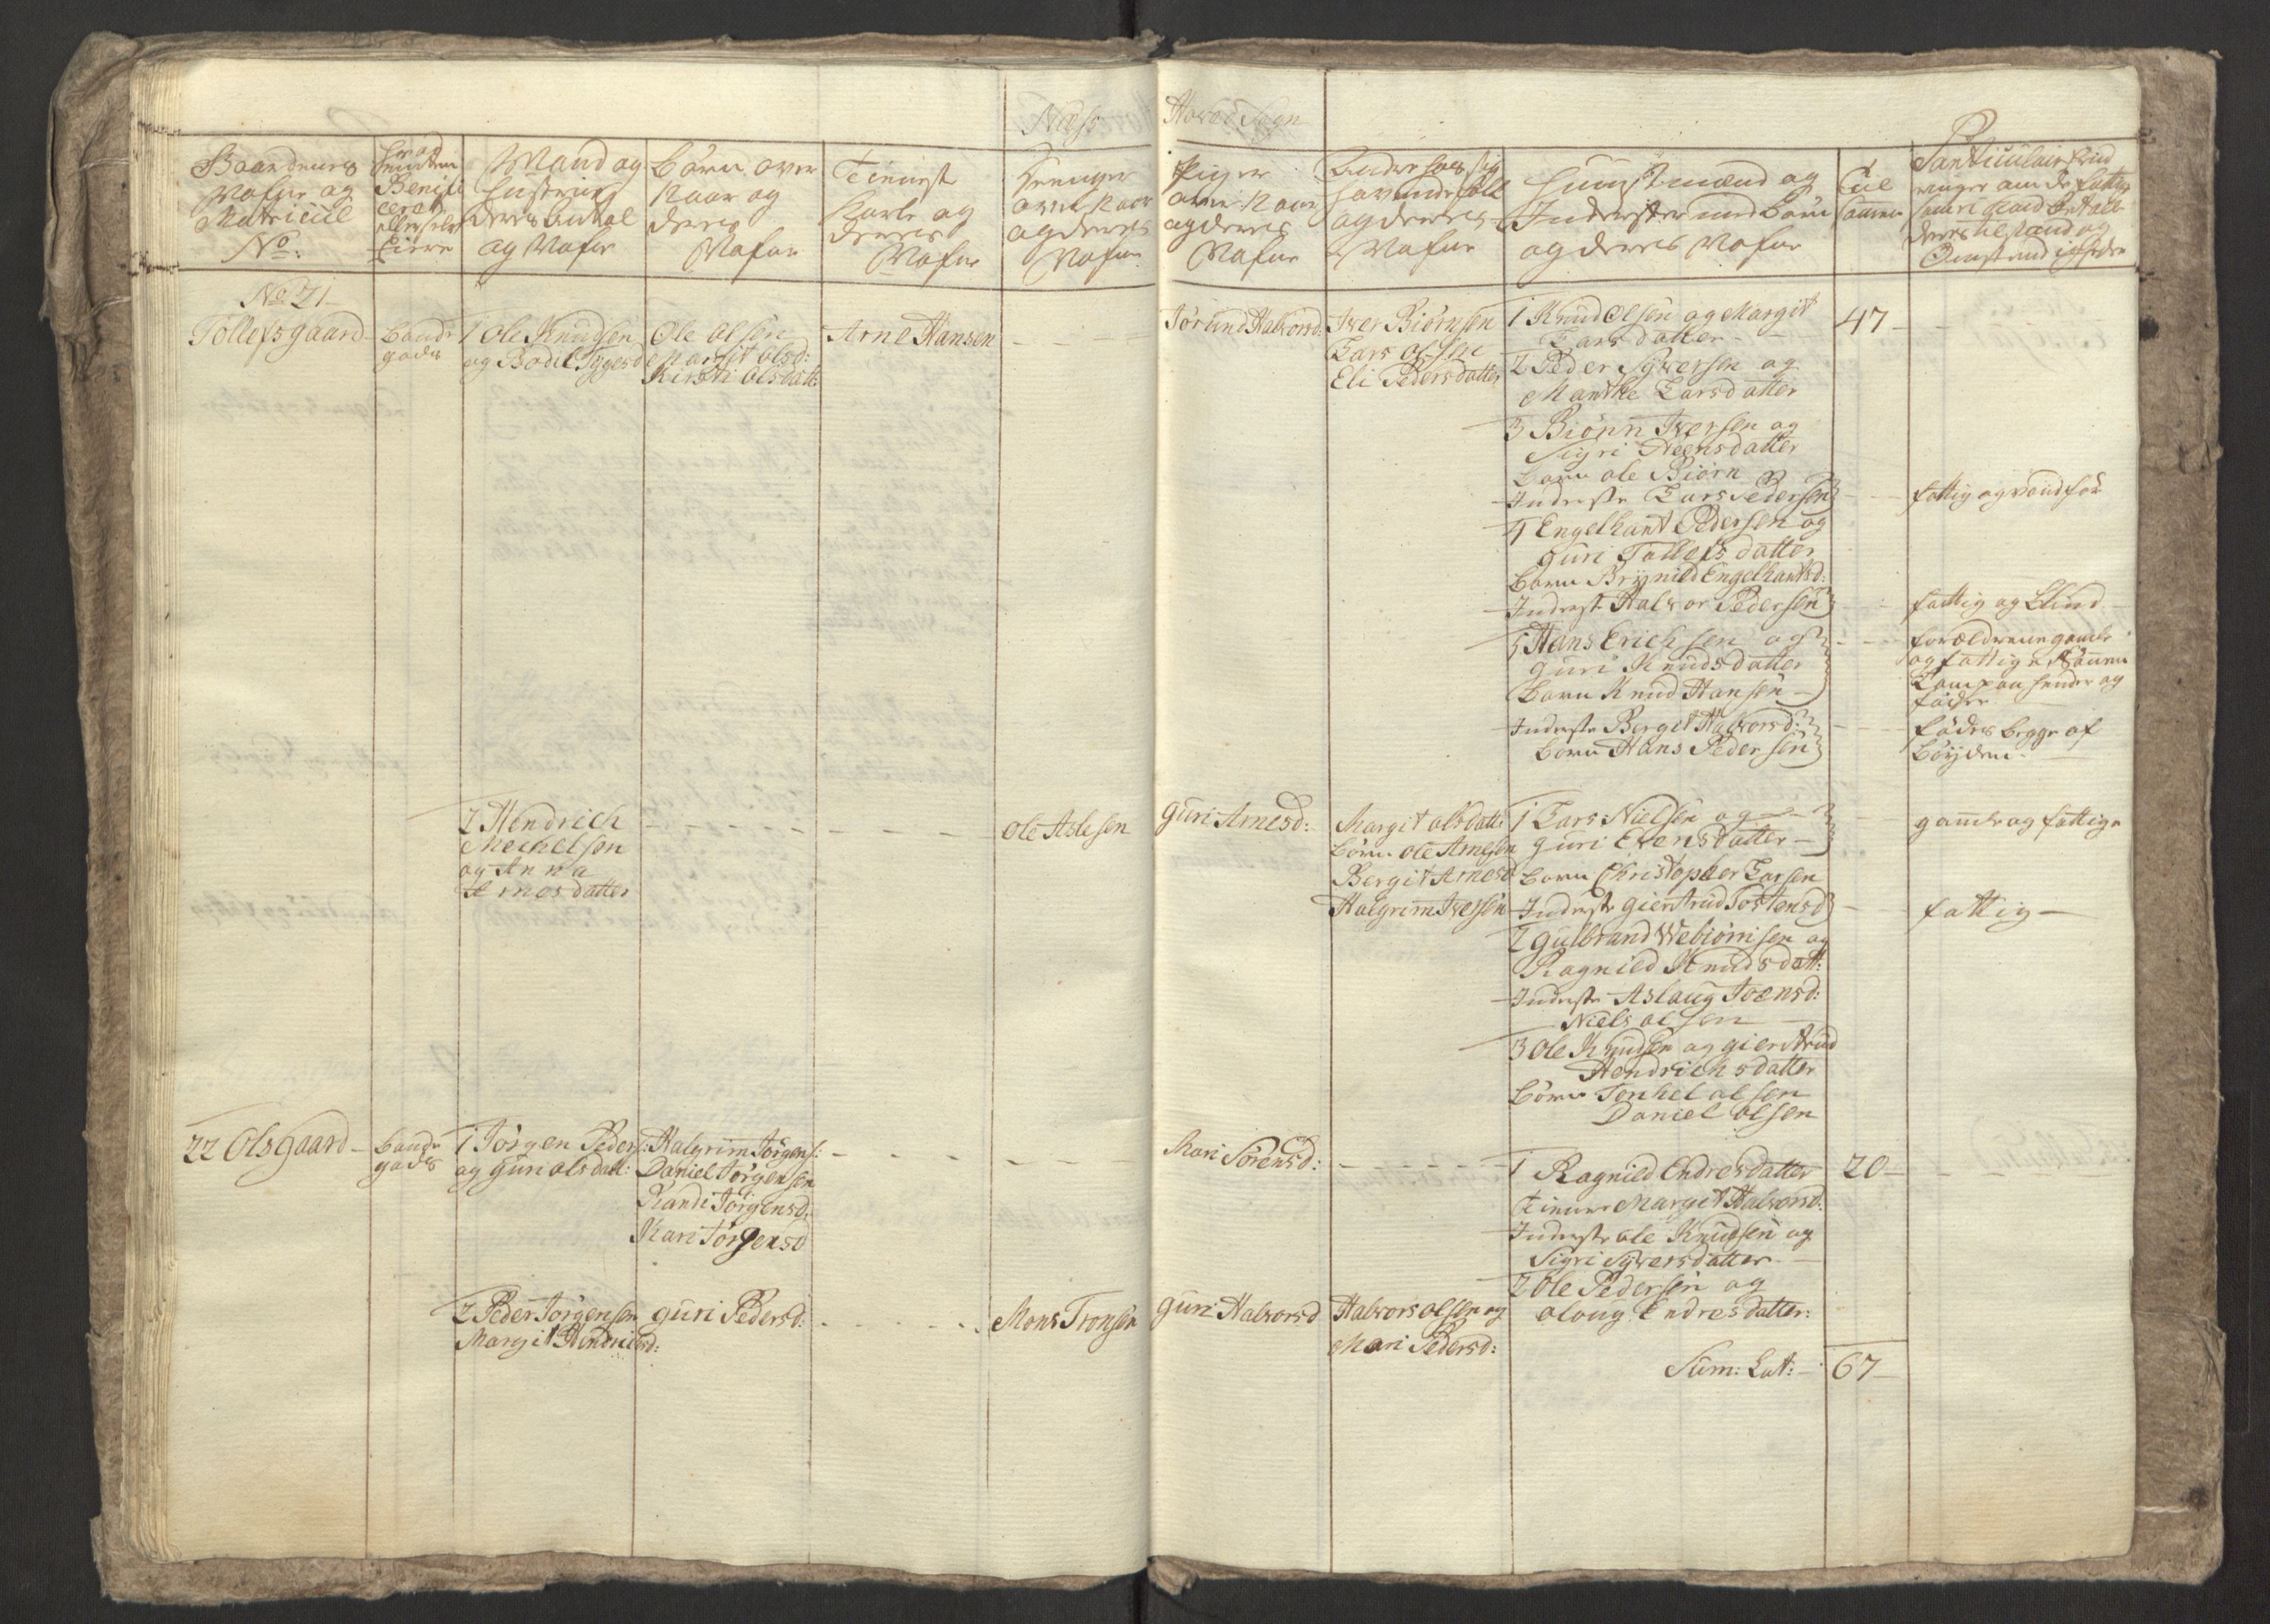 Næss Hoved Sogn
Gaardenes
Nafne og
Matricul
No:
Mand og
Hustrue
deres Antal
og Nafne
Børn over
12 aar og
deres
Nafne
Tieniste
Karle og
deres
Nafne
Drenger
over 12 aar
og deres
Nafne
Piger
over 12 aar
og deres
Nafne
og deres
Nafne
Huusmænd og
Inderster med Børn
og deres Nafne
Summa
No 21
Tollefsgaard
Bonde
gods
1 Ole Knudsen
og Bodil Tygesd
Ole Olsen
Margit Olsd:
Kirsti Olsdatt:
Arne Hansen
Jørund Halvorsd:
Iver Biørnsen
Lars Olsen
Eli Pedersdatter
1 Knud Olsen og Margit
Larsdatter
2 Peder Syversen og
Marthe Larsdatter
3 Biørn Iversen og
Sigri Steensdatter
Børn Ole Biørn
Inderste Lars Pedersen
4 Engelhart Pedersen og
Guri Tollefsdatter
Børn Brynild Engelhartsd:
Inderst Halvor Pedersen
5 Hans Erichsen og
Guri Knudsdatter
Børn Knud Hansen
Inderste Bergit Halvorsd:
Børn Hans Pedersen
47
fattig og vanfør
fattig og blind
forældrene gamle
og fattige Sønnen
Lam paa hender og
fødder
fødes begge af
Bøyden
2 Hendrich
Mechelsen
og Anna
Armosdatter
Ole Aslesen
Guri Arnesd:
Margit Olsdatt:
Børn Ole Arnesen
Bergit Arnesd
Halgrim Iversen
1 Lars Nielsen og
Guri Evensdatter
Børn Christopher Larsen
Inderste Giertrud Tostensd
2 Gulbrand Webiørnsen og
Ragnild Knudsdatt:
Inderste Aslaug Joensd:
Niels Olsen
3 Ole Knudsen og Giertrud
Hendrichsdatter
Børn Tenkel Olsen
Daniel Olsen
gamle og fattige
fattig
22 Olsgaard
Bonde
gods
1 Jørgen Peders:
og Guri Olsdatt:
Halgrim Jørgens:
Daniel Jørgensen
Randi Jørgensd.
Kari Jørgensd
Mari Sørensd:
1 Ragnild Endresdatter
tiener Margit Halvorsd.
Inderste Ole Knudsen og
Sigri Syversdatter
2 Ole Pedersen og
Oloug Endresdatter:
20
2 Peder Jørgensen
Margit Hendrichsd:
Guri Pedersd:
Mons Tronsen
Guri Halvorsd
Halvor Olsen og
Mari Pedersd:
Sum: Lat: 67